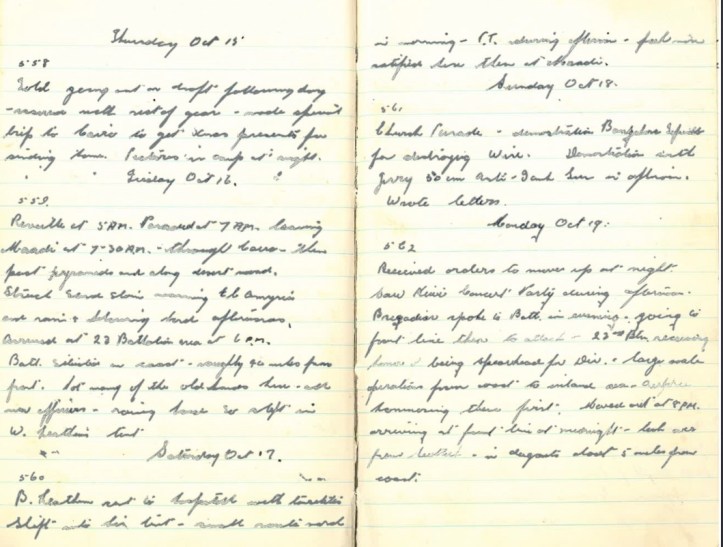 Thursday Oct 15
558
Told going out on draft following day
- issued with rest of gear - made special
trip to Cairo to get Xmas presents for
sending home. Pictures in camp at night.
Friday Oct 16.
559.
Reveille at 5 AM. Paraded at 7 AM. leaving
Maadi at 7-30 AM. - through Cairo - then
past pyramids and along desert road.
Struck Sand Storm nearing El Amyria
and rain & blowing hard afternoon.
Arrived at 23 Battalion area at 6 PM.
Batt. on coast - roughly 40 miles from
front. Not many of the old hands here -
new officers - raining hard so slept in
W. tent
Saturday Oct 17.
560
B. sent to hospital with tonsilitis
Shift into his tent - small route march
in morning - P.T. during afternoon - feel more
satisfied here than at Maadi.
Sunday Oct 18.
561
Church Parade - demonstration Bangalore
for destroying Wire. Demonstration with
Jerry 50 cm Anti-Tank Gun in afternoon.
Wrote letters.
Monday Oct 19.
562
Received orders to move up at night.
Saw Kiwi Concert Party during afternoon.
Brigadier spoke to Batt. in evening - going to
front line then to attack - 23rd Btn
being spearhead for Div. - large scale
operation from coast to inland sea - airforce
hammering them first. Moved out at 8 PM.
arriving at front line at midnight -
- in dugouts about 5 miles from
coast.